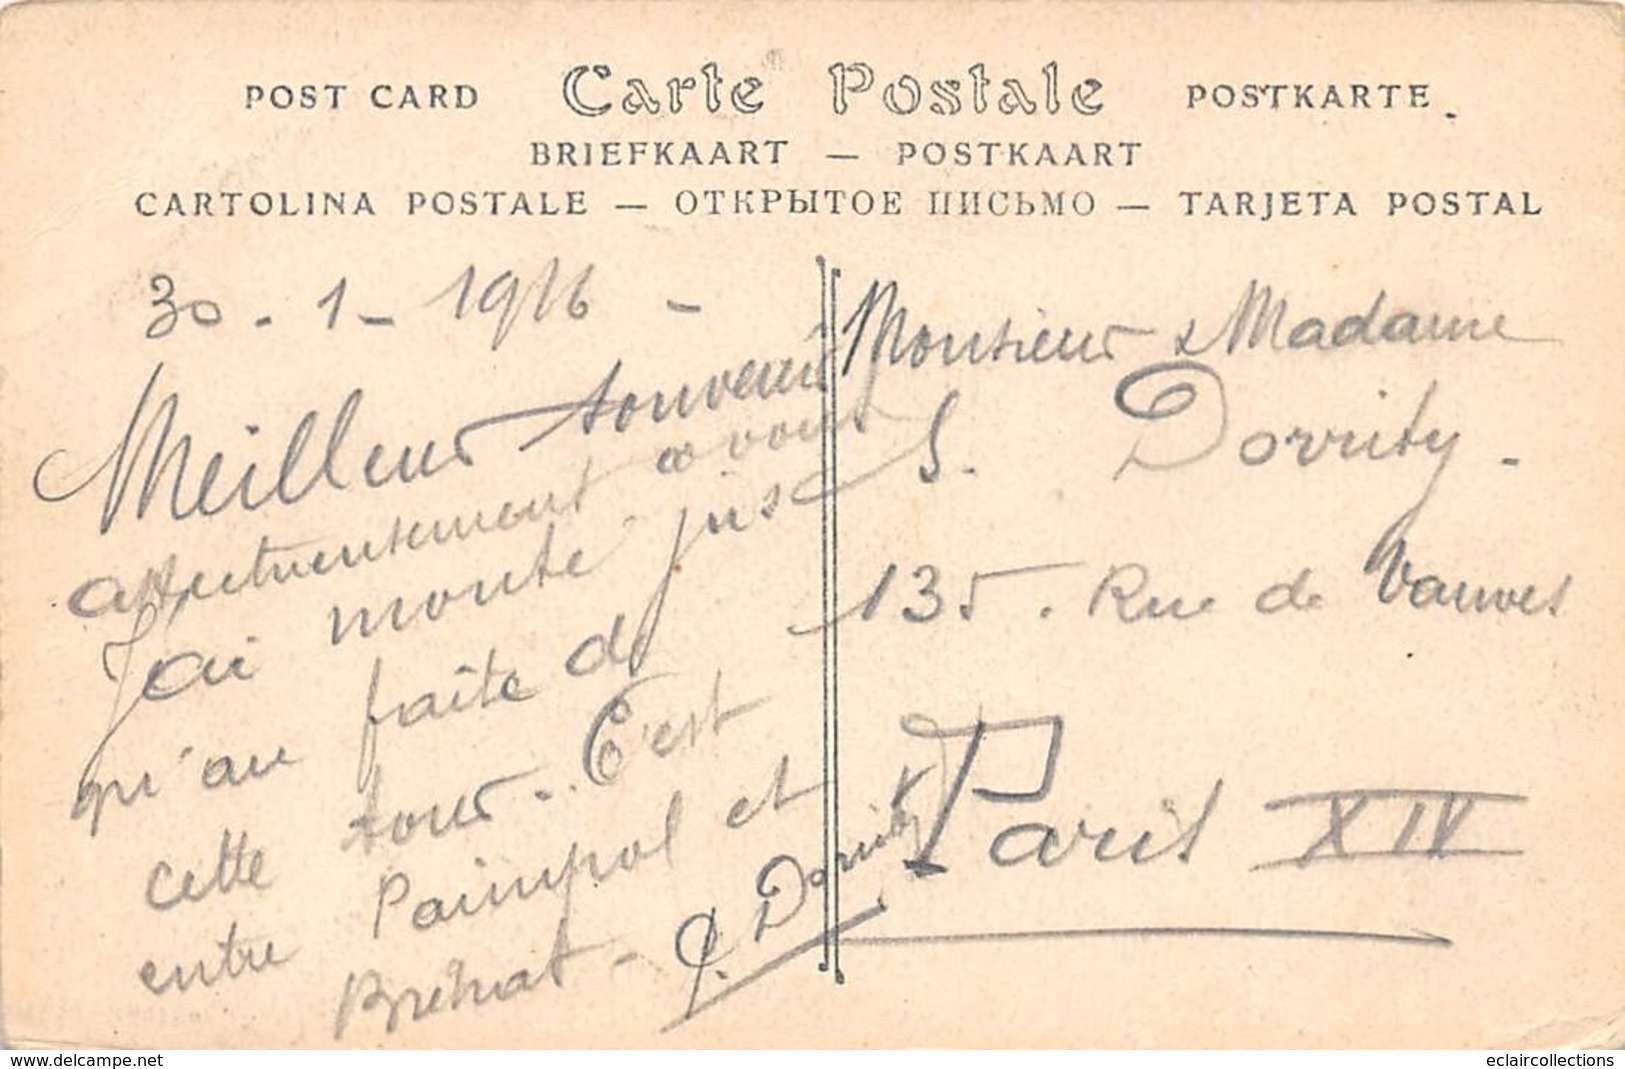 POST CARD Carte Postale POSTKARTE
BRIEFKAART — POSTKAART
CARTOLINA POSTALE — ОТКРЫТОЕ ПИСЬМО — TARJETA POSTAL
30 - 1 - 1916 -
Meilleur souvenir
affectueusement à vous
J'ai monté jus
qu'au faîte de
cette tour. C'est
entre Paimpol et
Bréhat -
Monsieur & Madame
S. Dorrity.
135. Rue de Vanves
Paris XIV
www.delcampe.net
eclaircollections